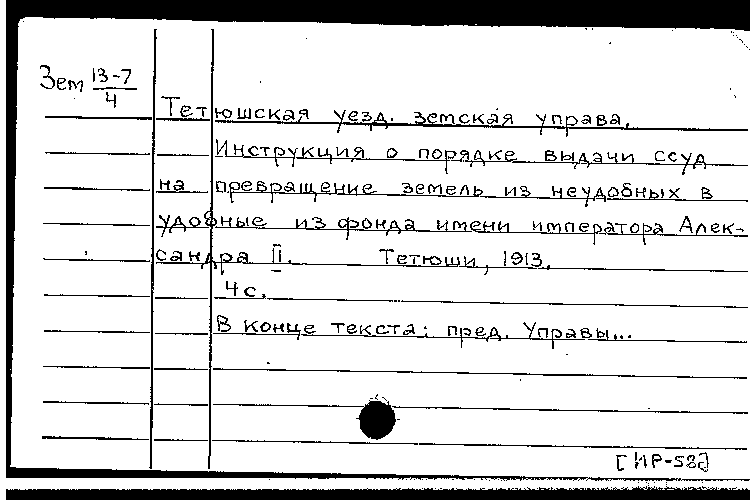 Зем 13-7/4
Тетюшская уезд. земская управа.
Инструкция о порядке выдачи ссуд
на превращение земель из неудобных в
удобные из фонда имени императора Алек-
сандра II. Тетюши, 1913.
4 с.
В конце текста: пред. Управы...
[ИР-582]